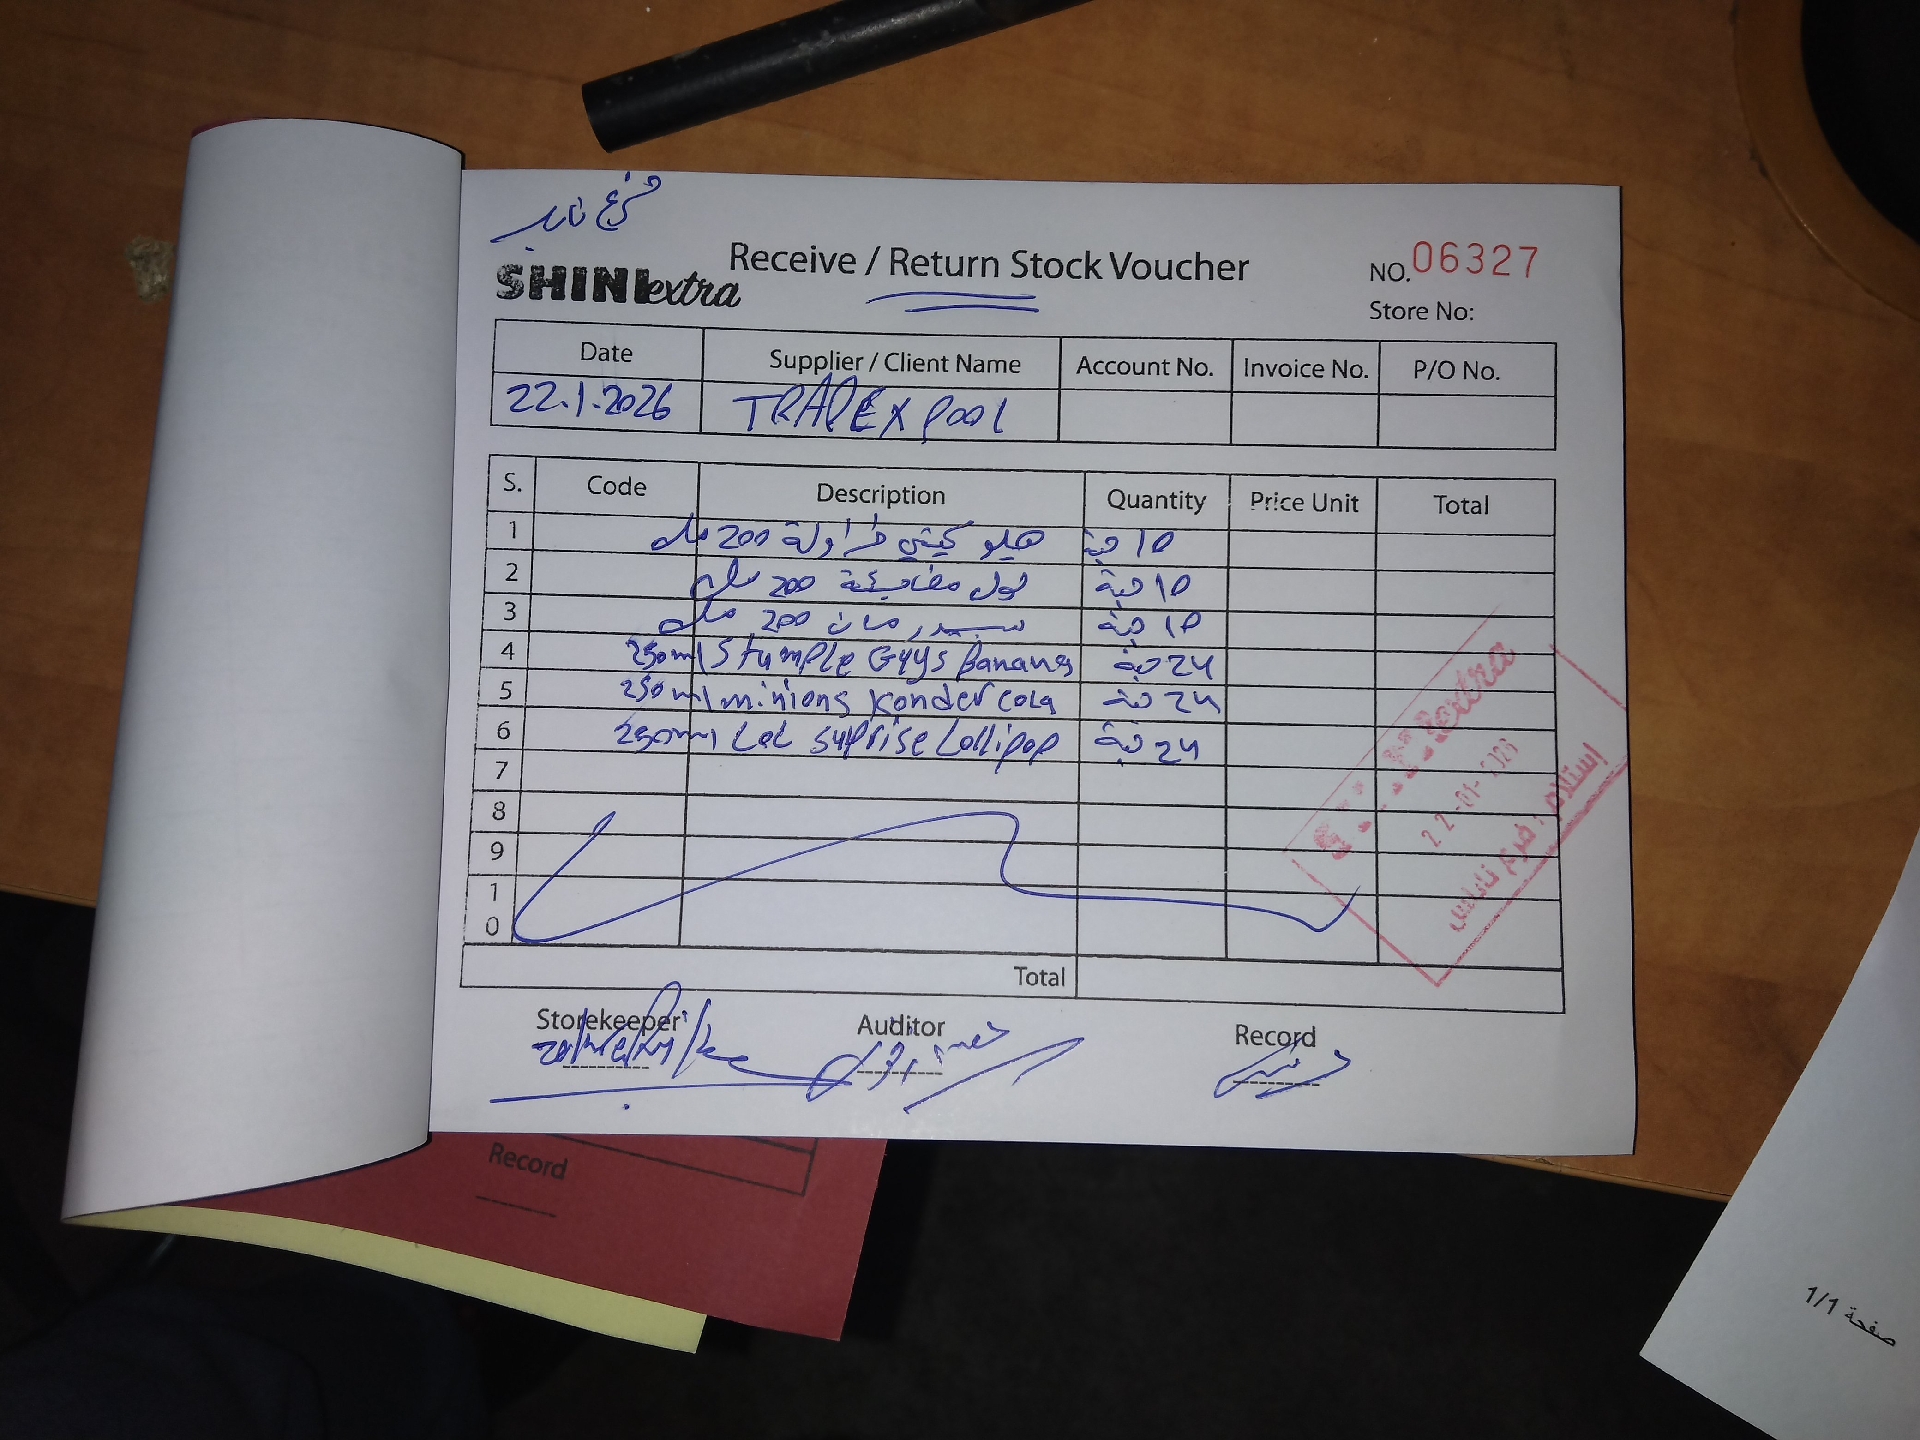 فرع نابلس
SHINI extra
Receive / Return Stock Voucher
NO. 06327
Store No:
Date Supplier / Client Name Account No. Invoice No. P/O No.
22.1.2026 TRADEX POOL
S. Code Description Quantity Price Unit Total
1 هيلو كيتي فراولة 200 مل 10 حبة
2 200 مل 10 حبة
3 رمان 200 مل 10 حبة
4 250ml Stumple Guys Banana 24 حبة
5 250ml minions Konder cola 24 حبة
6 250ml LoL suprise Lollipop 24 حبة
7
8
9
10
Total
extra
22-01-2026
استلام فرع نابلس
Storekeeper Auditor Record
Record
صفحة 1/1